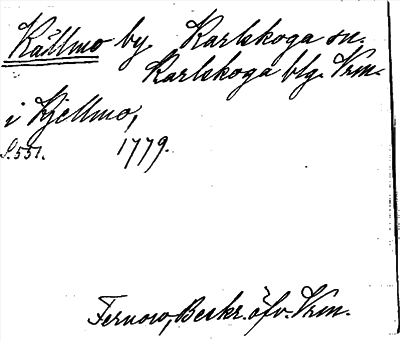 Källmo by Karlskoga sn.
Karlskoga blg. Vrm.
i Kjellmo,
S. 551. 1779.
Fernow, Beskr. öfv. Vrm.